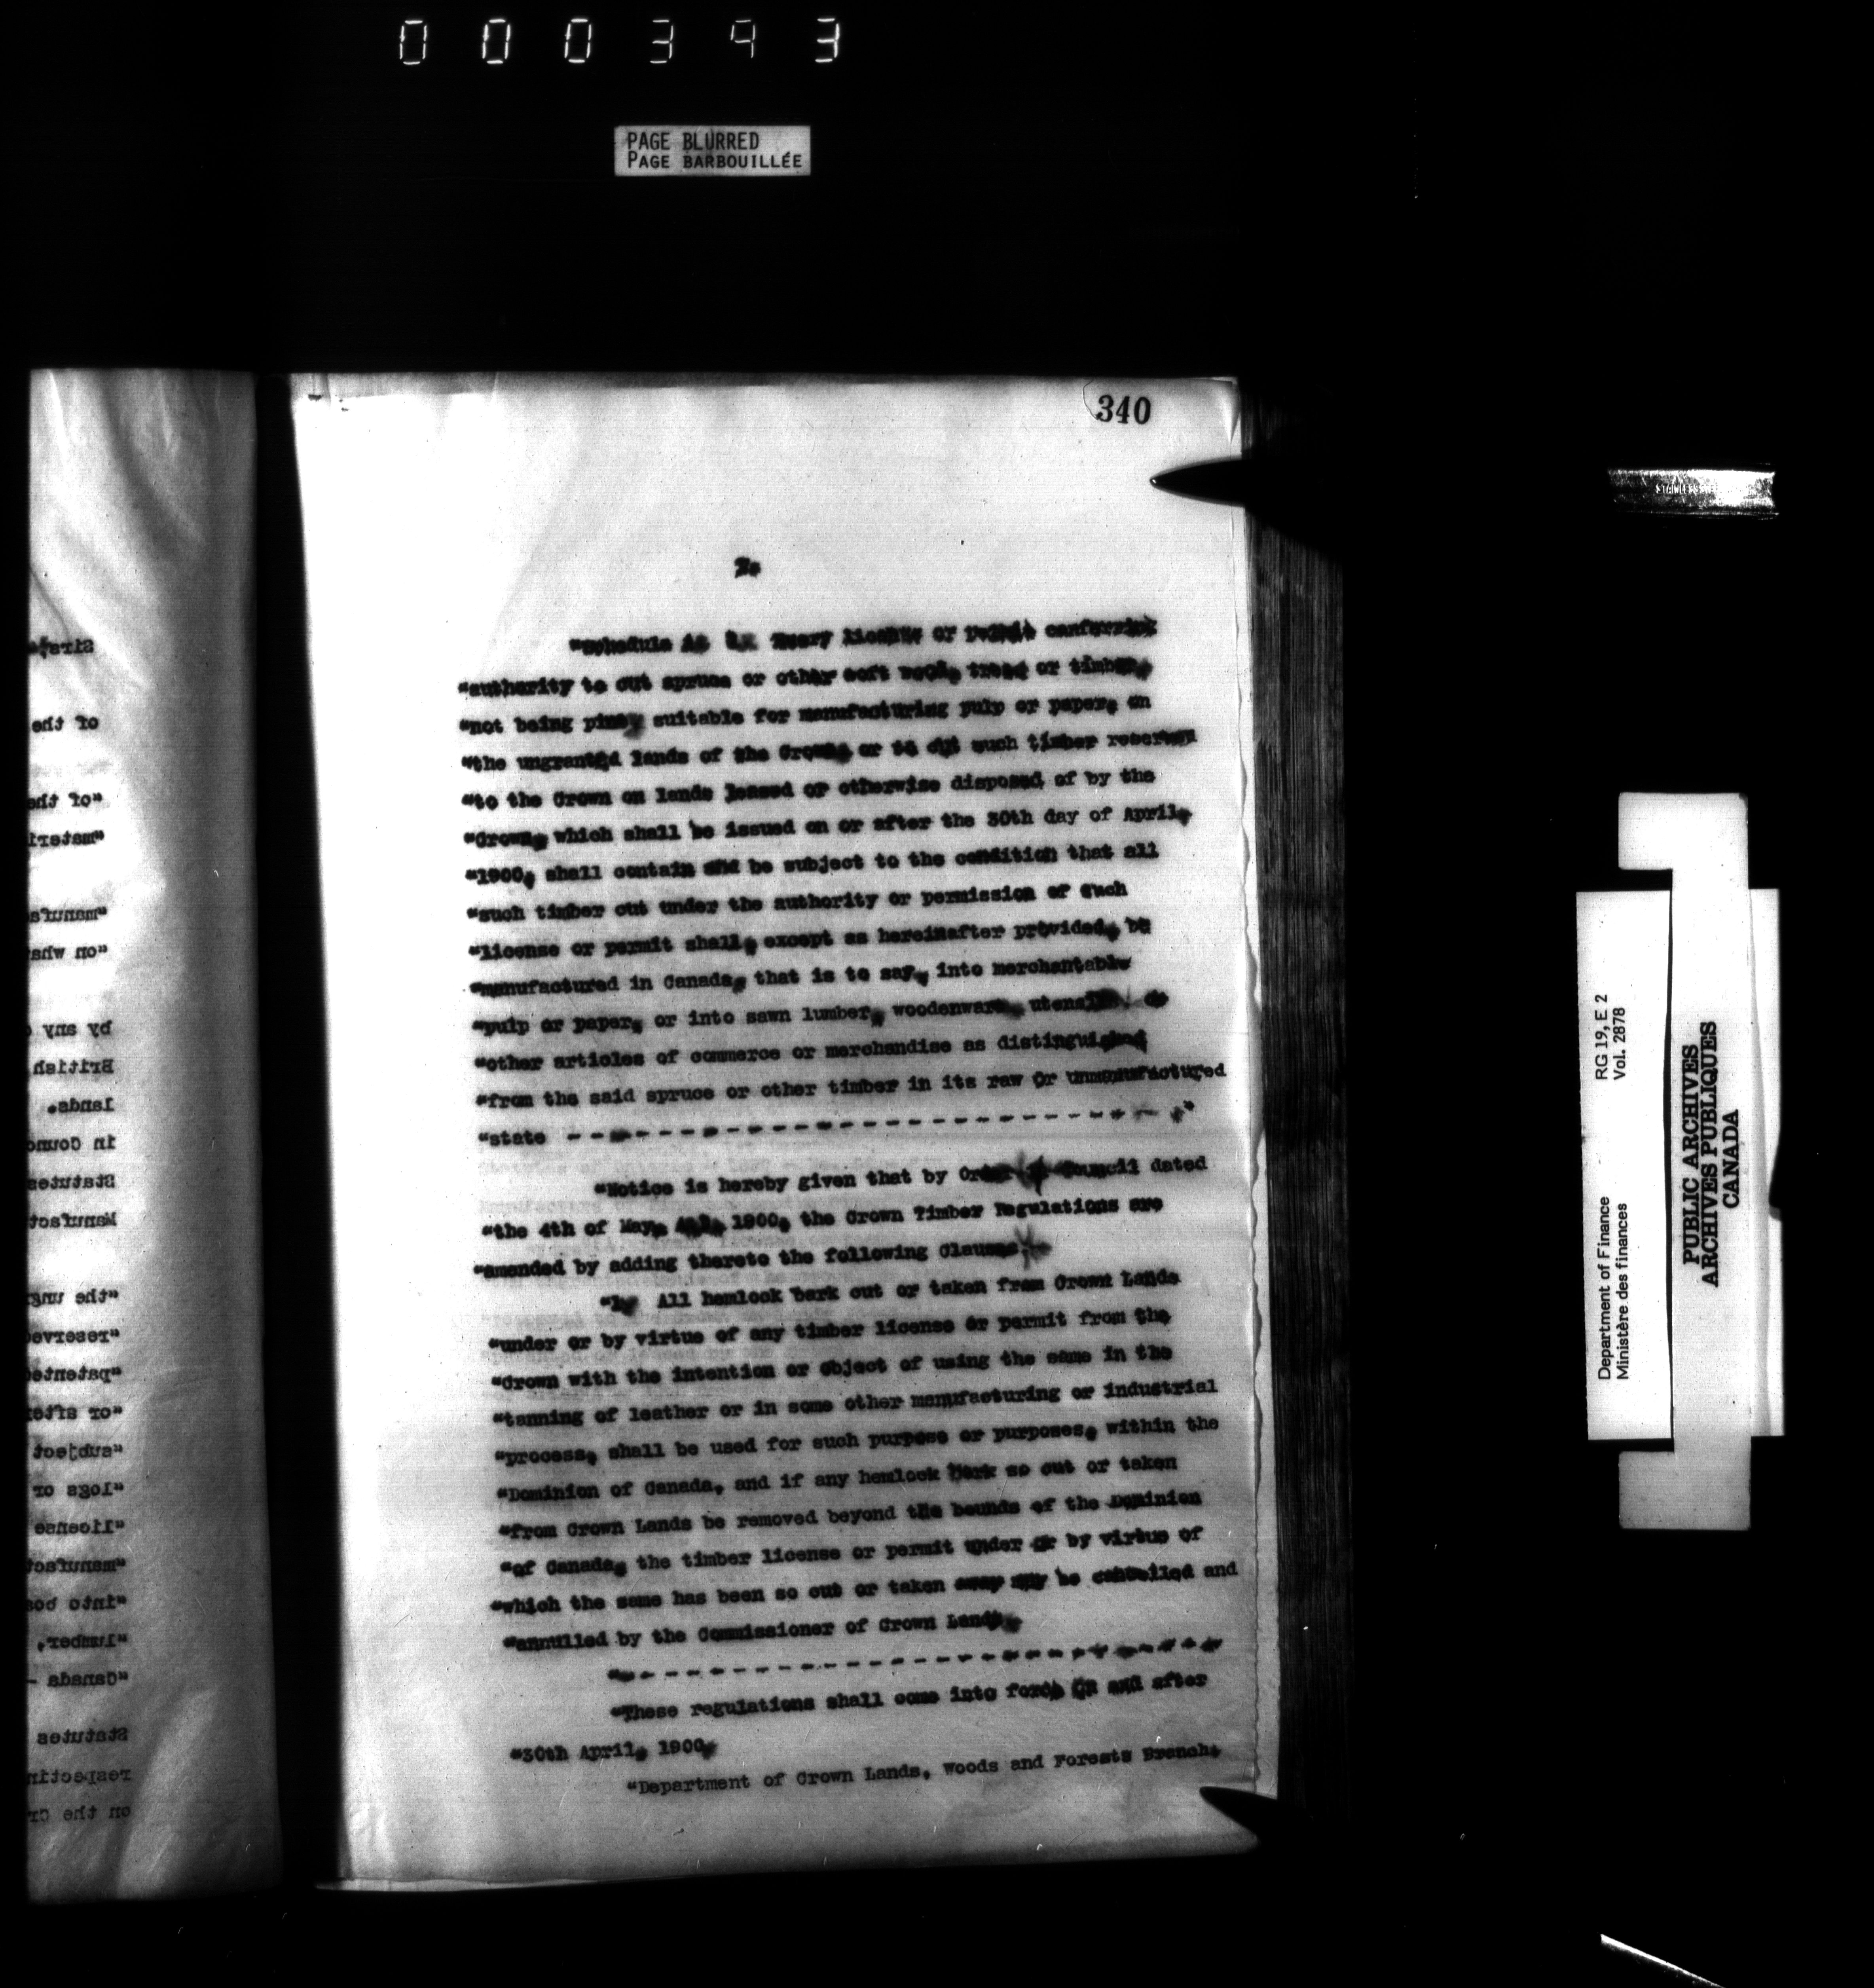 000343
PAGE BLURRED
PAGE BARBOUILLÉE
340
2.
"Schedule A. Every license or permit conferring
"authority to cut spruce or other soft wood, trees or timber,
"not being pine, suitable for manufacturing pulp or paper, on
"the ungranted lands of the Crown, or to cut such timber reserved
"to the Crown on lands leased or otherwise disposed of by the
"Crown, which shall be issued on or after the 30th day of April,
"1900, shall contain and be subject to the condition that all
"such timber cut under the authority or permission of such
"license or permit shall, except as hereinafter provided, be
"manufactured in Canada, that is to say, into merchantable
"pulp or paper, or into sawn lumber, woodenware, utensils, or
"other articles of commerce or merchandise as distinguished
"from the said spruce or other timber in its raw or unmanufactured
"state - - - - - - - - - - - - - - - - - - - - - - - - "
"Notice is hereby given that by Order in Council dated
"the 4th of May, A.D. 1900, the Crown Timber Regulations are
"amended by adding thereto the following Clauses,-
"1. All hemlock bark cut or taken from Crown Lands
"under or by virtue of any timber license or permit from the
"Crown with the intention or object of using the same in the
"tanning of leather or in some other manufacturing or industrial
"process, shall be used for such purpose or purposes, within the
"Dominion of Canada, and if any hemlock bark so cut or taken
"from Crown Lands be removed beyond the bounds of the Dominion
"of Canada, the timber license or permit under or by virtue of
"which the same has been so cut or taken away may be cancelled and
"annulled by the Commissioner of Crown Lands.
"- - - - - - - - - - - - - - - - - - - - - - - - -
"These regulations shall come into force on and after
"30th April, 1900.
"Department of Crown Lands, Woods and Forests Branch,
Sirs,
of the
"of the
"materi
"manufa
"on wha
by any
British
lands.
in Counc
Statutes
Manufact
"the ung
"reserve
"patente
"or after
"subject
"logs or
"license
"manufact
"into boa
"lumber,
"Canada -
Statutes
respectin
on the Cr
STAINLESS
Department of Finance RG 19, E 2
Ministère des finances Vol. 2878
PUBLIC ARCHIVES
ARCHIVES PUBLIQUES
CANADA